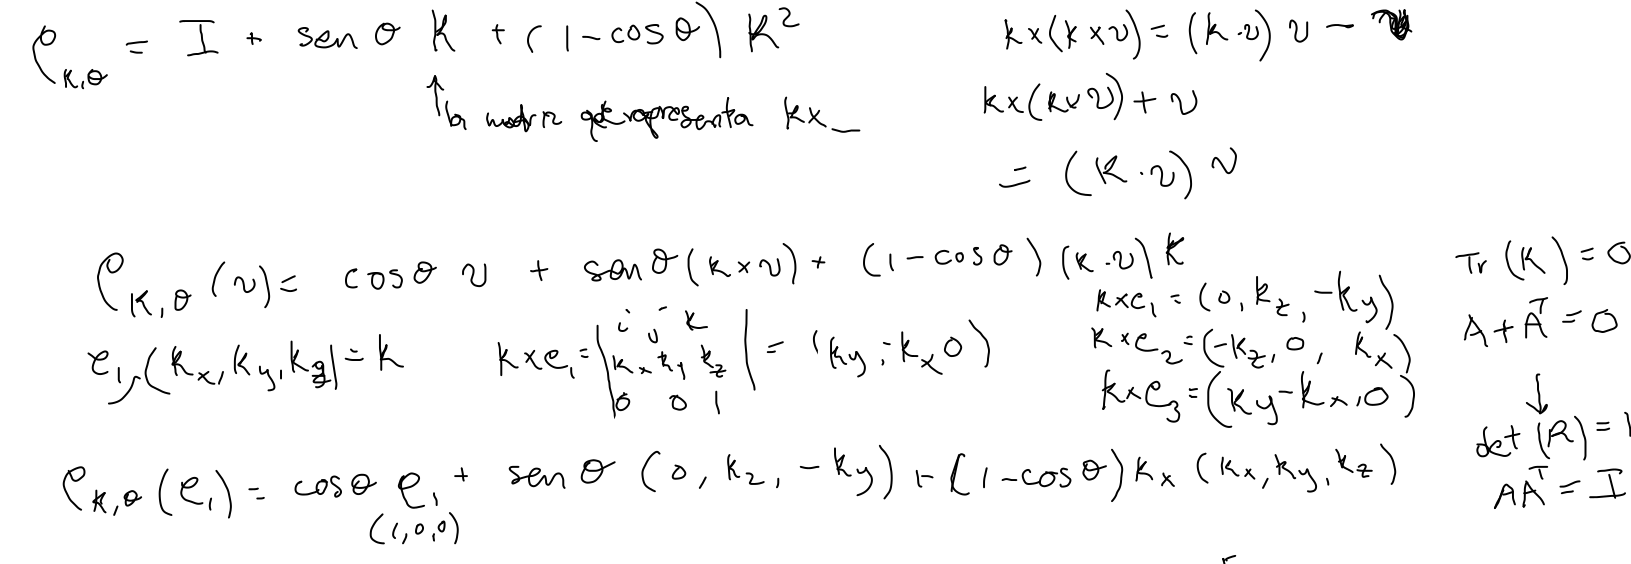 ρ_{K,θ} = I + sen θ K + (1 - cos θ) K²
↑ la matriz que representa K×_
k×(k×v) = (k·v) v -
k×(k×v) + v
= (K·v) v
ρ_{K,θ}(v) = cos θ v + sen θ (k×v) + (1 - cos θ) (k·v) k
e₁, (k_x, k_y, k_z) = k
k×e₁ = | i j k ; k_x k_y k_z ; 0 0 1 | = (k_y, -k_x 0)
k×e₁ = (0, k_z, -k_y)
k×e₂ = (-k_z, 0, k_x)
k×e₃ = (k_y -k_x, 0)
Tr (K) = 0
A + A^T = 0
↓
det (R) = 1
AA^T = I
ρ_{K,θ}(e₁) = cos θ e₁ + sen θ (0, k_z, -k_y) + (1 - cos θ) k_x (k_x, k_y, k_z)
(1,0,0)